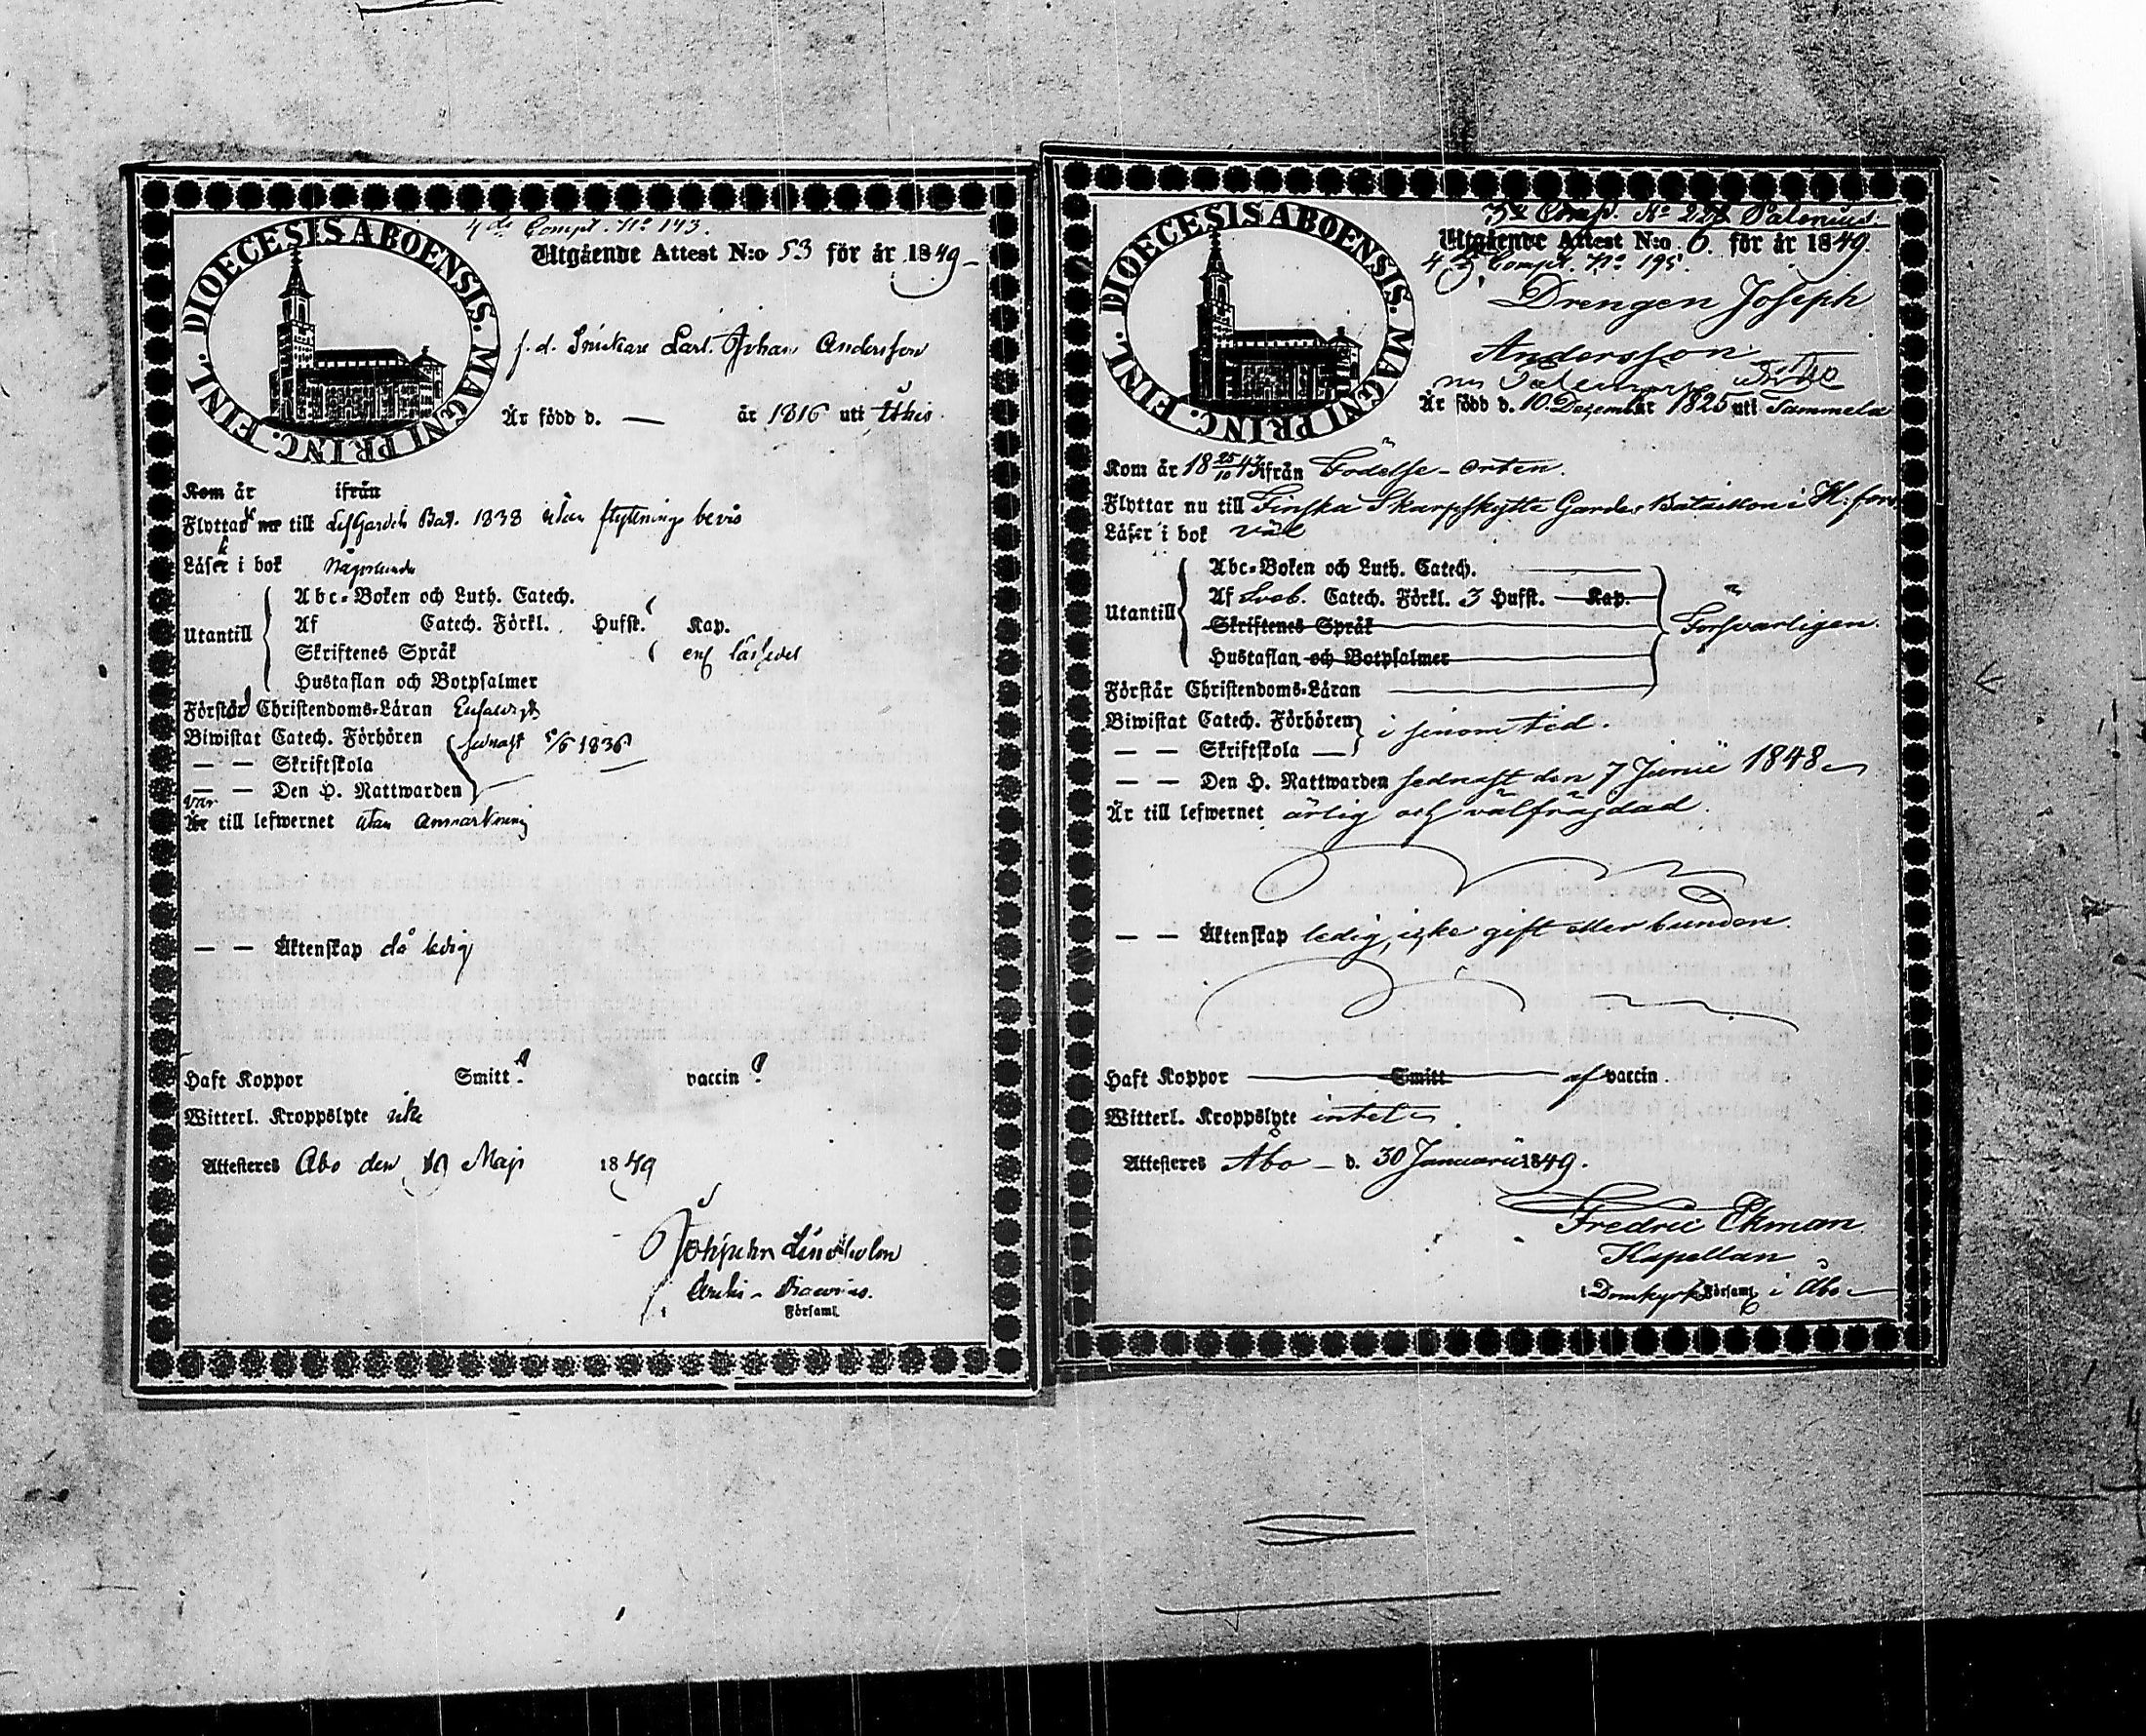 DIOECESIS ABOENSIS. MAGNI PRINC. FINL.
4de Compt. No 143.
Utgående Attest N:o 53 för år 1849
f. d. Snickare Carl Johan Andersson
Är född d. — år 1816 uti Åbo
Kom år ifrån
Flyttade nu till LifGardets Bat. 1838 utan flyttnings bevis
Läser i bok någorlunda
Utantill
Abc-Boken och Luth. Catech.
Af Catech. Förkl. Husst. Kap.
Skriftenes Språk enl läsfedel
Hustaflan och Botpsalmer
Förstår Christendoms-Läran
Biwistat Catech. Förhören sednast 5/6 1836
— — Skriftskola
— — Den H. Nattwarden
var
Är till lefwernet utan anmärkning
— — Äktenskap då ledig
Haft Koppor Smitt? vaccin?
Witterl. Kroppslyte icke
Attesteras Åbo den 10 Maji 1849
Lindholm
i Församl.
DIOECESIS ABOENSIS. MAGNI PRINC. FINL.
3de Comp. No Palenius.
Utgående Attest N:o 6. för år 1849.
4de Compt. No 195.
Drengen Joseph
Andersson
Är född d. 10 Dezember 1825 uti Tammela
Kom år 18 25/10 43 ifrån Födelse-orten.
Flyttar nu till Finska Skarpskytte Gardes Bataillon i H:fors
Läser i bok väl
Utantill
Abc-Boken och Luth. Catech.
Af Sveb. Catech. Förkl. 3 Husst. Kap.
Skriftenes Språk
Försvarligen.
Hustaflan och Botpsalmer
Förstår Christendoms-Läran
Biwistat Catech. Förhören i sinom tid.
— — Skriftskola —
— — Den H. Nattwarden sednast den 7 Junii 1848
Är till lefwernet ärlig och välfrägdad.
— — Äktenskap ledig, icke gift eller bunden.
Haft Koppor Smitt af vaccin.
Witterl. Kroppslyte intet
Attesteras Åbo — d. 30 Januarii 1849.
Fredric Ekman
Kapellan
i Domkyrko Församl. i Åbo